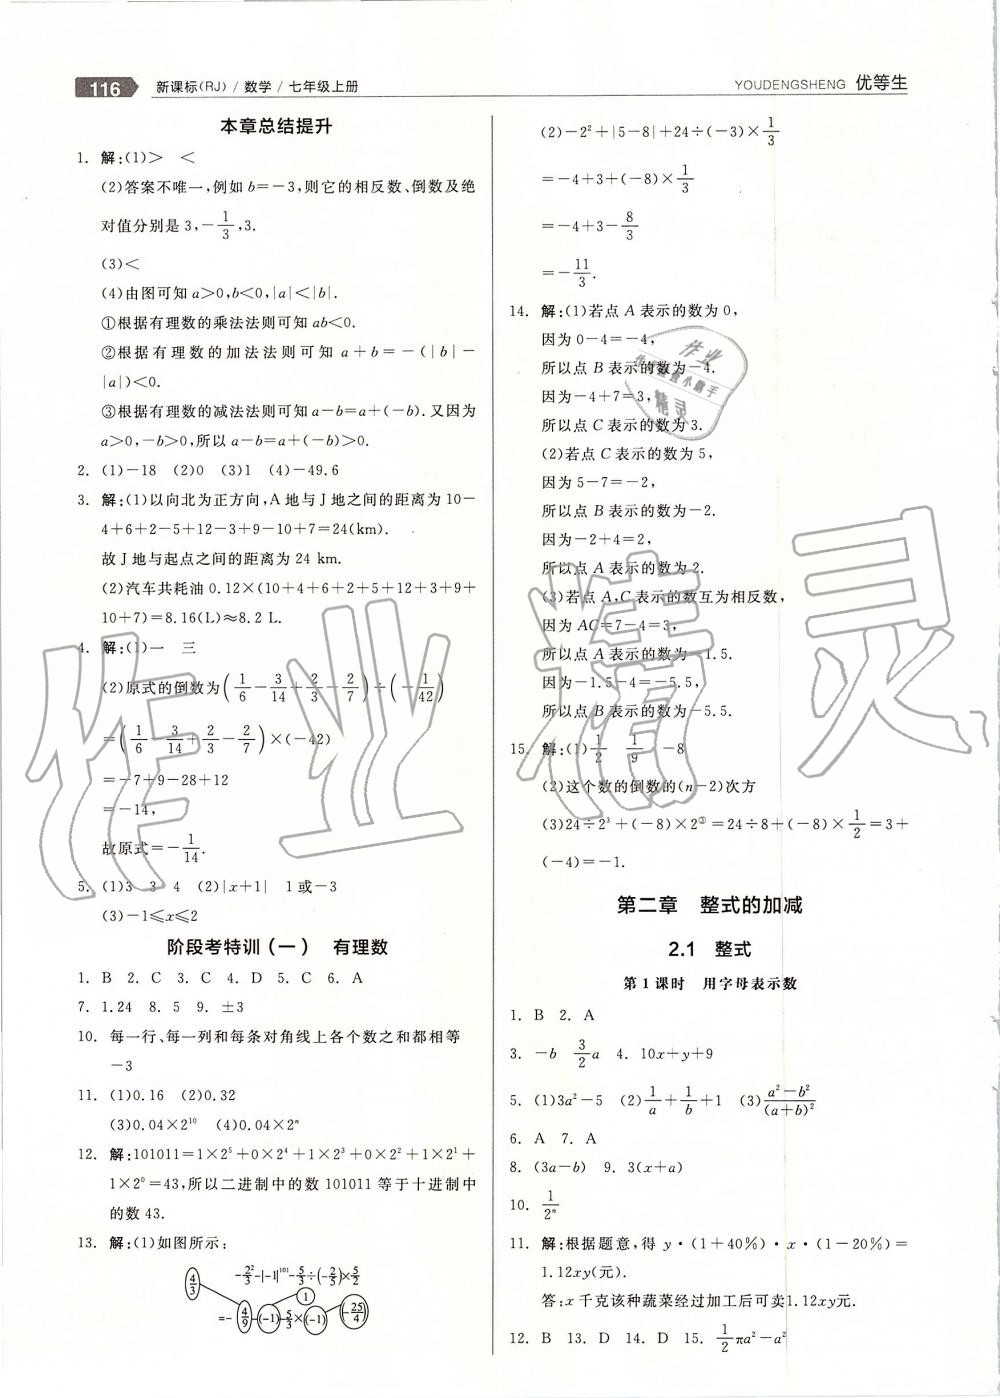 116 新课标(RJ)/数学/七年级上册
YOUDENGSHENG 优等生
本章总结提升
1. 解:(1)> <
(2)答案不唯一,例如b=-3,则它的相反数、倒数及绝
对值分别是3,-1/3,3.
(3)<
(4)由图可知a>0,b<0,|a|<|b|.
①根据有理数的乘法法则可知ab<0.
②根据有理数的加法法则可知a+b=-(|b|-
|a|)<0.
③根据有理数的减法法则可知a-b=a+(-b).又因为
a>0,-b>0,所以a-b=a+(-b)>0.
2. (1)-18 (2)0 (3)1 (4)-49.6
3. 解:(1)以向北为正方向,A地与J地之间的距离为10-
4+6+2-5+12-3+9-10+7=24(km).
故J地与起点之间的距离为24 km.
(2)汽车共耗油0.12×(10+4+6+2+5+12+3+9+
10+7)=8.16(L)≈8.2 L.
4. 解:(1)一 三
(2)原式的倒数为(1/6-3/14+2/3-2/7)÷(-1/42)
=(1/6-3/14+2/3-2/7)×(-42)
=-7+9-28+12
=-14,
故原式=-1/14.
5. (1)3 3 4 (2)|x+1| 1或-3
(3)-1≤x≤2
阶段考特训(一) 有理数
1. B 2. C 3. C 4. D 5. C 6. A
7. 1.24 8. 5 9. ±3
10. 每一行、每一列和每条对角线上各个数之和都相等
-3
11. (1)0.16 (2)0.32
(3)0.04×2¹⁰ (4)0.04×2ⁿ
12. 解:101011=1×2⁵+0×2⁴+1×2³+0×2²+1×2¹+
1×2⁰=43,所以二进制中的数101011等于十进制中
的数43.
13. 解:(1)如图所示:
4/3 -2²/3-|-1|¹⁰¹-5/3÷(-2/5)×5/2
1
=-4/9-(-1)-5/3×(-1) (-25/4)
(2)-2²+|5-8|+24÷(-3)×1/3
=-4+3+(-8)×1/3
=-4+3-8/3
=-11/3.
14. 解:(1)若点A表示的数为0,
因为0-4=-4,
所以点B表示的数为-4.
因为-4+7=3,
所以点C表示的数为3.
(2)若点C表示的数为5,
因为5-7=-2,
所以点B表示的数为-2.
因为-2+4=2,
所以点A表示的数为2.
(3)若点A,C表示的数互为相反数,
因为AC=7-4=3,
所以点A表示的数为-1.5.
因为-1.5-4=-5.5,
所以点B表示的数为-5.5.
15. 解:(1)1/2 1/9 -8
(2)这个数的倒数的(n-2)次方
(3)24÷2³+(-8)×2^③=24÷8+(-8)×1/2=3+
(-4)=-1.
第二章 整式的加减
2.1 整式
第1课时 用字母表示数
1. B 2. A
3. -b 3/2a 4. 10x+y+9
5. (1)3a²-5 (2)1/a+1/b+1 (3)(a²-b²)/(a+b)²
6. A 7. A
8. (3a-b) 9. 3(x+a)
10. 1/2ⁿ
11. 解:根据题意,得y·(1+40%)·x·(1-20%)=
1.12xy(元).
答:x千克该种蔬菜经过加工后可卖1.12xy元.
12. B 13. D 14. D 15. 1/2πa²-a²
作业精灵
作业
精灵